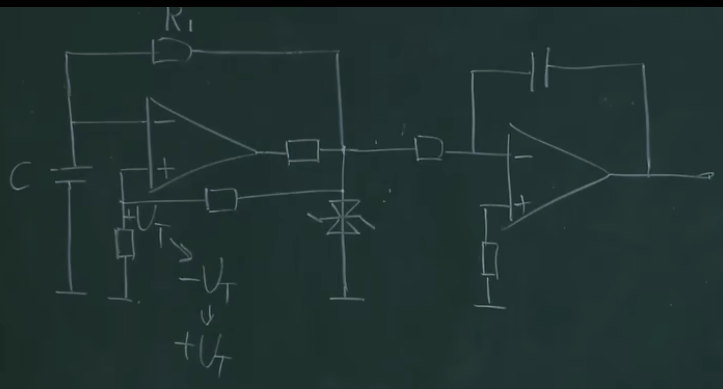 R₁
C
−
+
−
+
+U_T
−U_T
+U_T